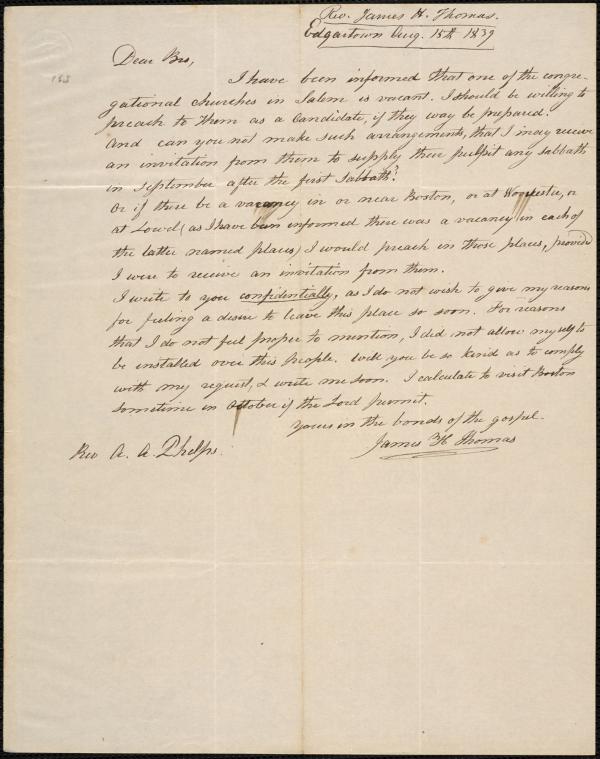 Rev. James H. Thomas.
Edgartown Aug. 15th 1839
Dear Bro,
153
I have been informed that one of the congre-
gational churches in Salem is vacant. I should be willing to
preach to them as a Candidate, if they may be prepared.
And can you not make such arrangements, that I may receive
an invitation from them to supply their pulpit any sabbath
in September after the first Sabbath?
Or if there be a vacancy in or near Boston, or at Worcester, or
at Lowel (as I have been informed there was a vacancy in each of
the latter named places) I would preach in those places, provided
I were to receive an invitation from them.
I write to you confidentially, as I do not wish to give my reasons
for feeling a desire to leave this place so soon. For reasons
that I do not feel proper to mention, I did not allow myself to
be installed over this people. Will you be so kind as to comply
with my request, & write me soon. I calculate to visit Boston
sometime in October if the Lord permit.
Yours in the bonds of the gospel.
James H. Thomas
Rev A. A. Phelps.